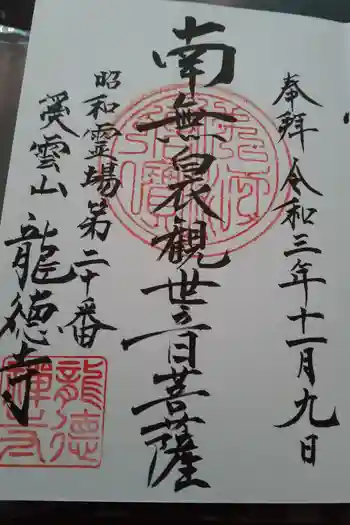 奉拝 令和三年十一月九日
南無聖観世音菩薩
昭和霊場第二十番
愛雲山 龍徳寺
龍徳